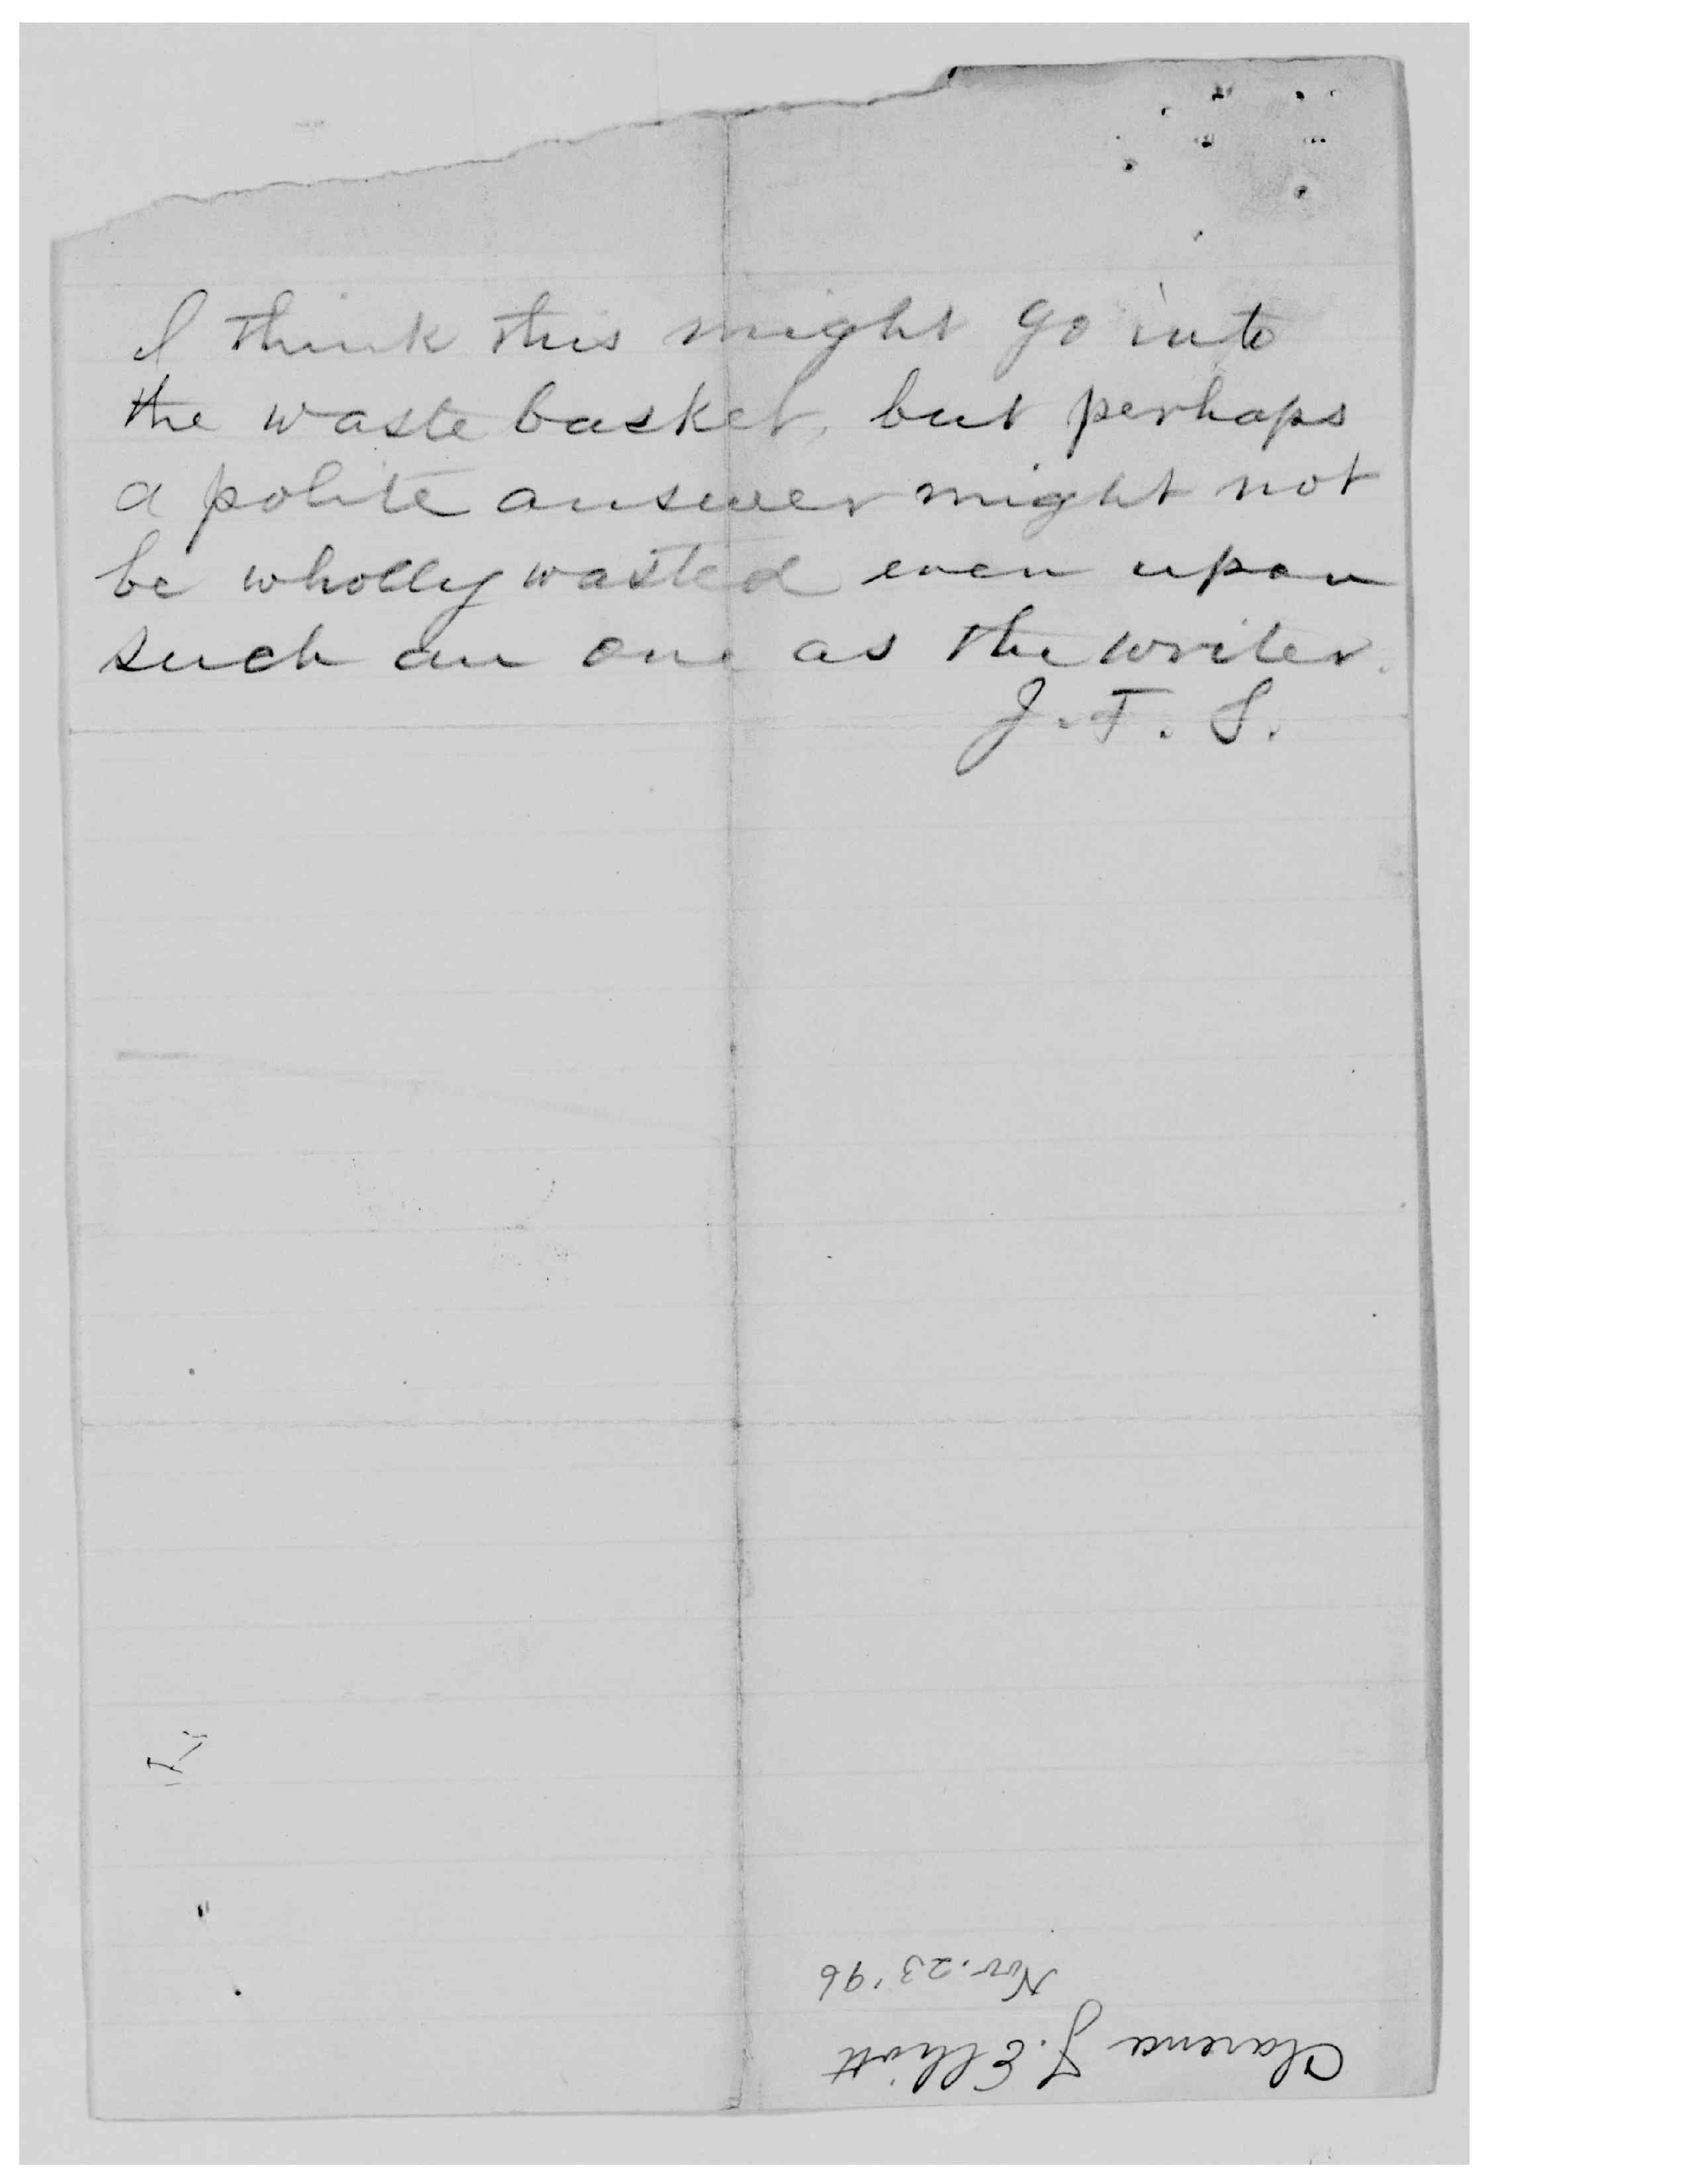 I think this might go into
the waste basket, but perhaps
a polite answer might not
be wholly wasted even upon
such an one as the writer.
J. T. S.
Clarence J. Elliott
Nov. 23 '96